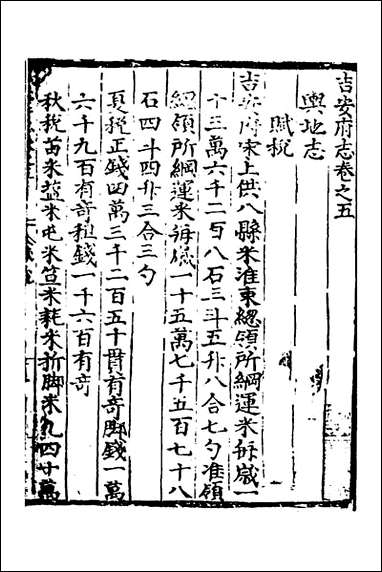 吉安府志卷之五
輿地志
賦稅
吉安府宋上供八縣米淮東總領所綱運米每歲一
十三萬六千二百八石三斗五升八合七勺淮領
總領所綱運米每歲一十五萬七千五百七十八
石四斗四升三合三勺
夏稅正錢四萬三千二百五十貫有奇脚錢一萬
六千九百有奇租錢一千六百有奇
秋稅苗米鹽米屯米䇹米耗米折脚米九四十萬